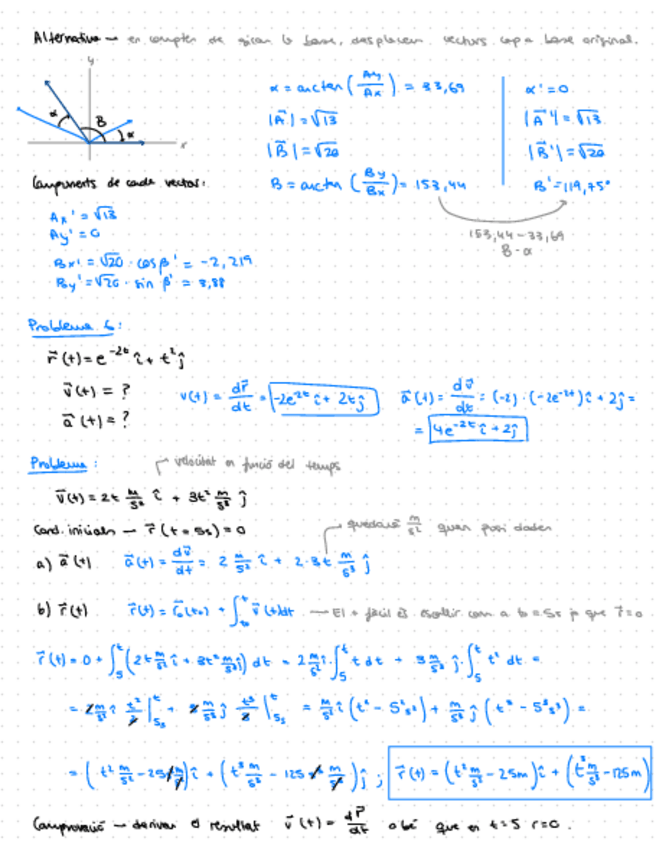 Alternativa — en comptes de girar la base, desplacem vectors cap a base original.
y
α
B
α
x
α = arctan (Ay/Ax) = 33,69
|A⃗| = √13
|B⃗| = √20
B = arctan (By/Bx) = 153,44
α' = 0
|A⃗'| = √13
|B⃗'| = √20
B' = 119,75°
153,44 - 33,69
B - α
Components de cada vector:
Ax' = √13
Ay' = 0
Bx' = √20 · cos β' = -2,219
By' = √20 · sin β' = 3,88
Problema 6:
r⃗(t) = e^-2t î + t² ĵ
v⃗(t) = ?
a⃗(t) = ?
v(t) = dr⃗/dt = -2e^-2t î + 2t ĵ
a⃗(t) = dv⃗/dt = (-2) · (-2e^-2t) î + 2ĵ =
= 4e^-2t î + 2ĵ
Problema:
velocitat en funció del temps
v⃗(t) = 2t m/s² î + 3t² m/s³ ĵ
Cond. inicials — r⃗(t = 5s) = 0
quedarà m/s² quan posi dades
a) a⃗(t) a⃗(t) = dv⃗/dt = 2 m/s² î + 2·3t m/s³ ĵ
b) r⃗(t) r⃗(t) = r⃗₀(t₀) + ∫t₀^t v⃗(t)dt — El + fàcil és escollir com a t₀ = 5s ja que r⃗ = 0
r⃗(t) = 0 + ∫5^t (2t m/s² î + 3t² m/s³ ĵ) dt = 2 m/s² î · ∫5^t t dt + 3 m/s³ ĵ · ∫5^t t² dt =
= 2 m/s² î t²/2 |5s^t + 3 m/s³ ĵ t³/3 |5s^t = m/s² î (t² - 5² s²) + m/s³ ĵ (t³ - 5³ s³) =
= (t² m/s² - 25 s² m/s²) î + (t³ m/s³ - 125 s³ m/s³) ĵ ; r⃗(t) = (t² m/s² - 25m) î + (t³ m/s³ - 125m)
Comprovació — derivar el resultat v⃗(t) = dr⃗/dt o bé que en t = 5 r = 0.